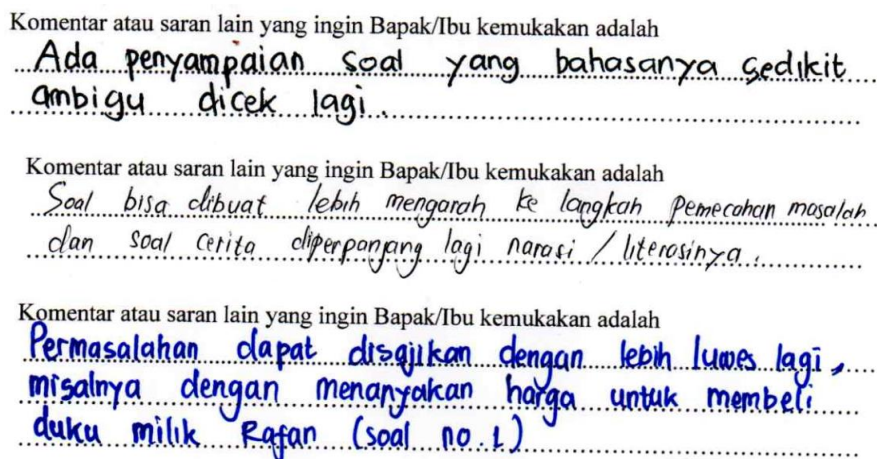 Komentar atau saran lain yang ingin Bapak/Ibu kemukakan adalah
Ada penyampaian soal yang bahasanya sedikit
ambigu dicek lagi.
Komentar atau saran lain yang ingin Bapak/Ibu kemukakan adalah
Soal bisa dibuat lebih mengarah ke langkah pemecahan masalah
dan soal cerita diperpanjang lagi narasi / literasinya.
Komentar atau saran lain yang ingin Bapak/Ibu kemukakan adalah
Permasalahan dapat disajikan dengan lebih luwes lagi,
misalnya dengan menanyakan harga untuk membeli
duku milik Rafan (soal no. 1)